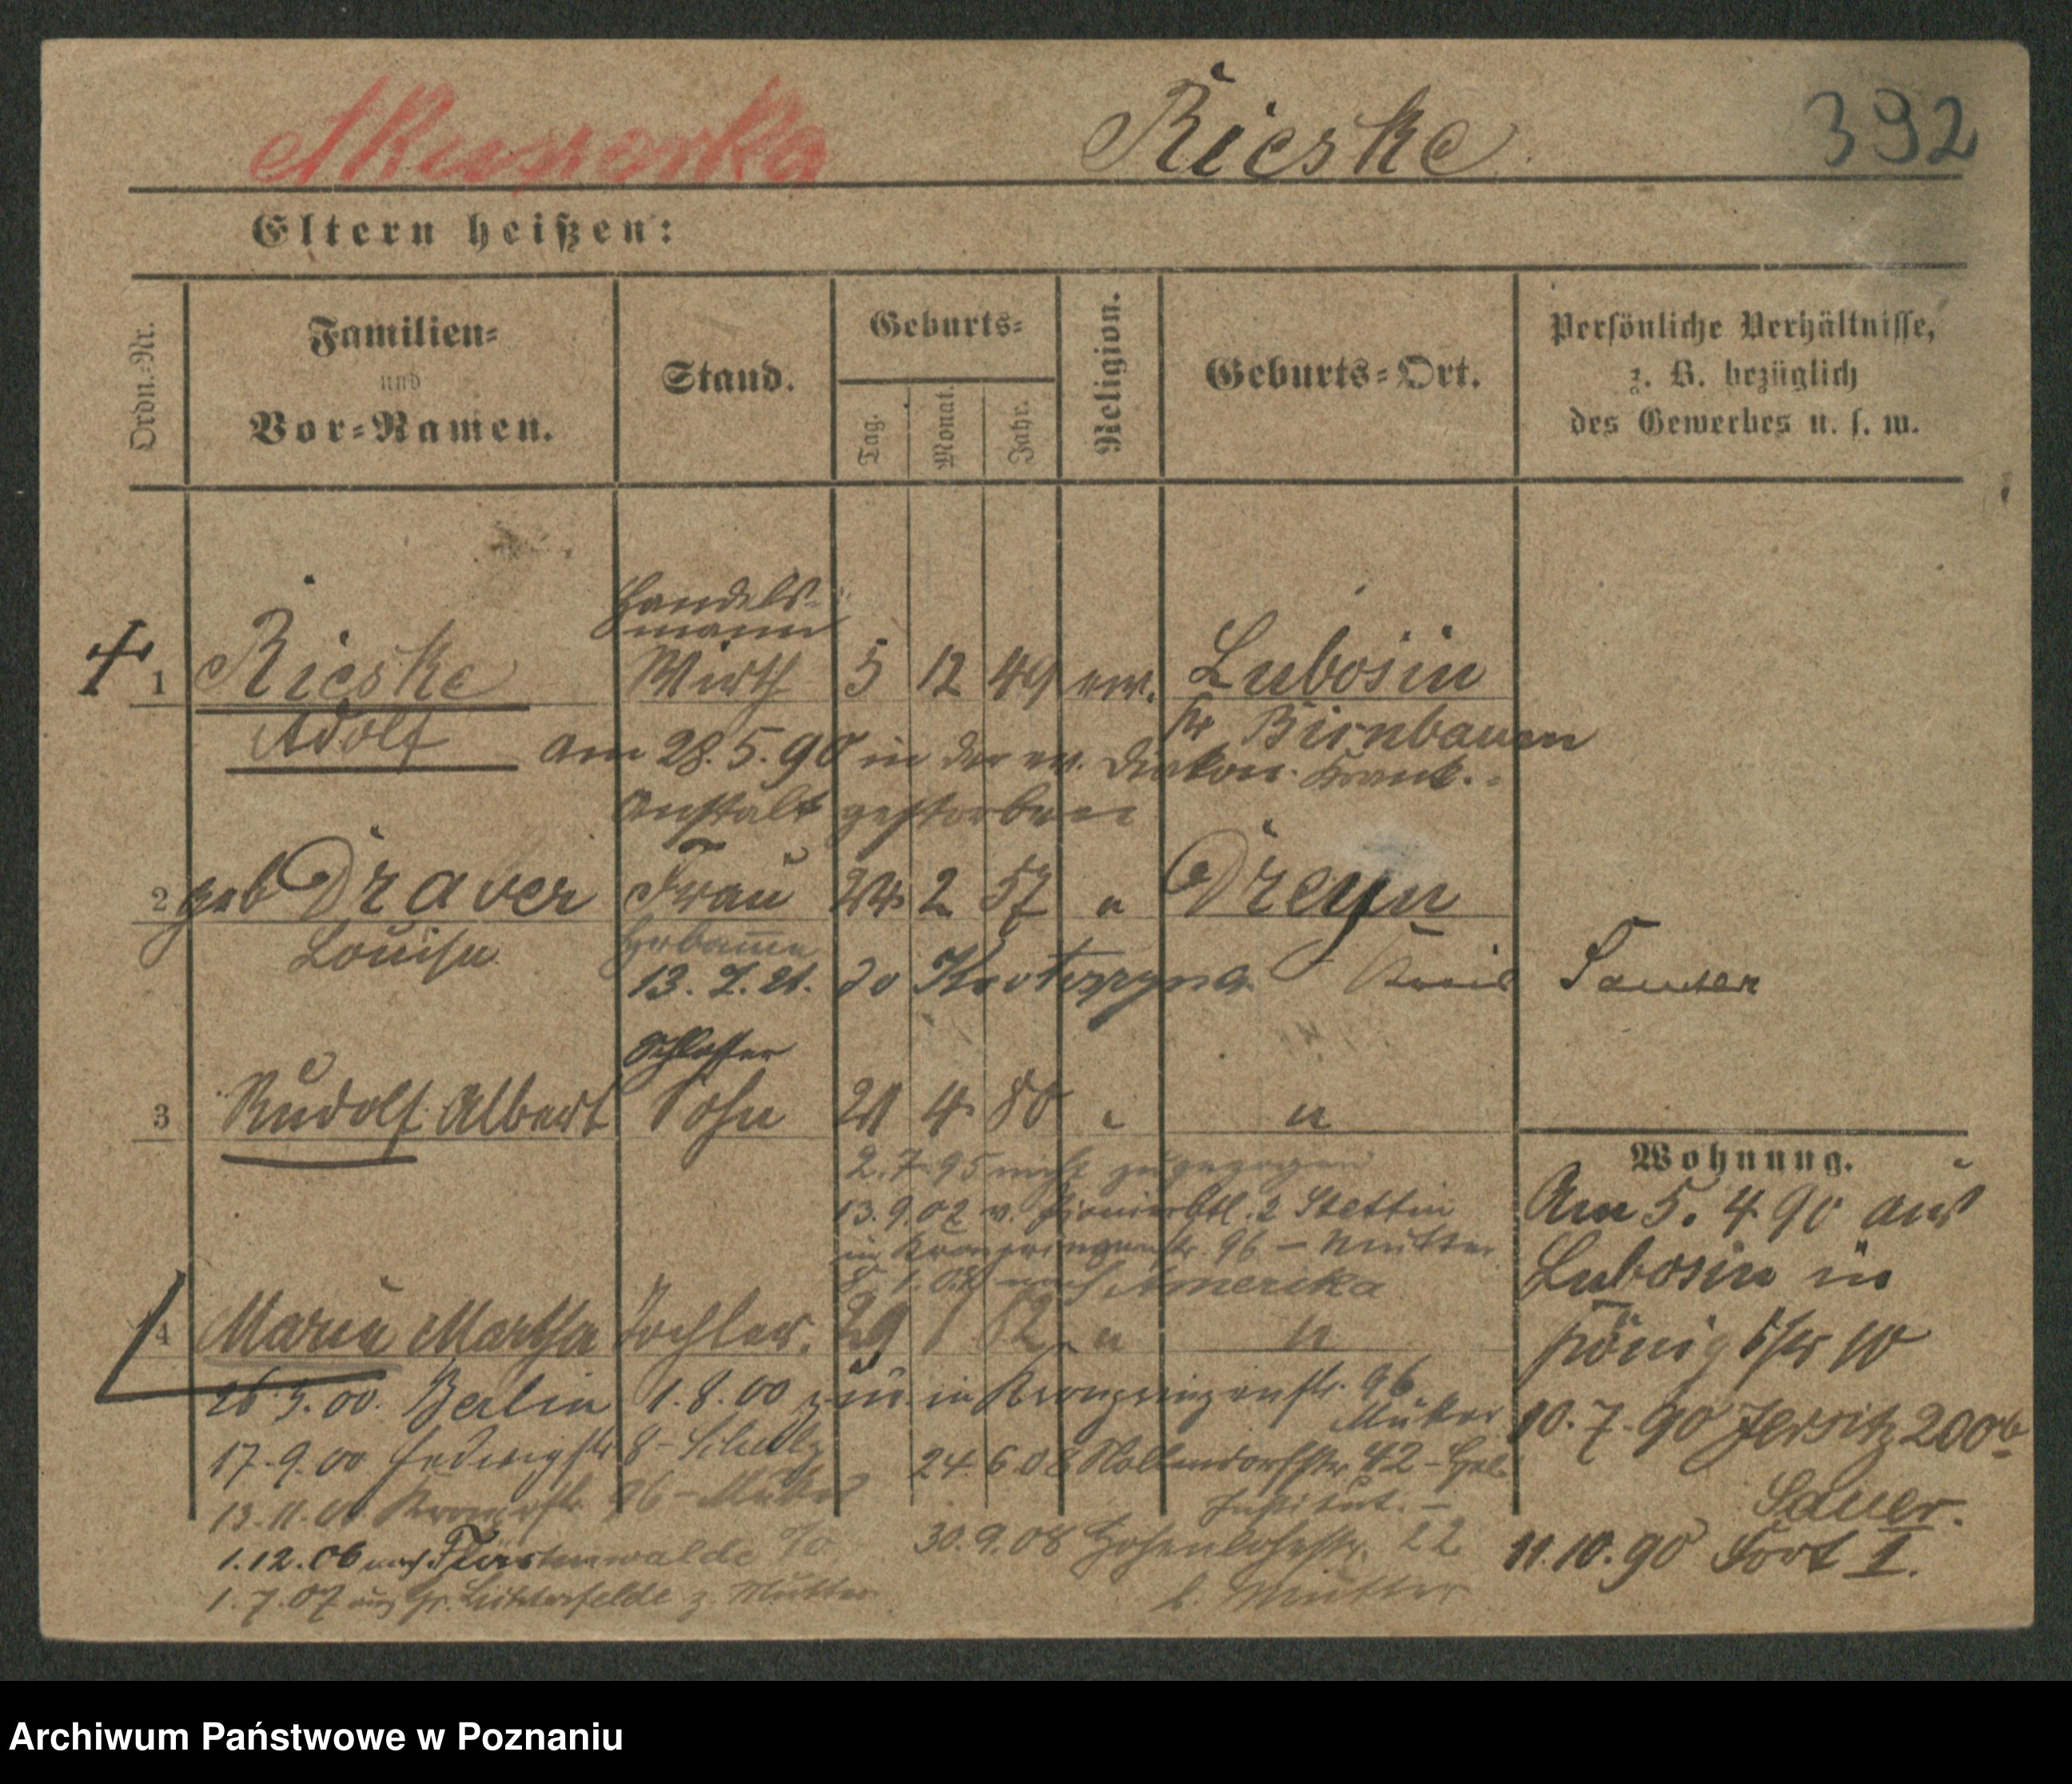 Akuszerka Rieske 392
Eltern heißen:
Ordn.-Nr.
Familien-
und
Vor-Namen.
Stand.
Geburts-
Tag. Monat. Jahr.
Religion.
Geburts-Ort.
Persönliche Verhältnisse,
z. B. bezüglich
des Gewerbes u. s. w.
Handels-
mann
1 Rieske Wirth 5 12 49 ev. Lubosin
Adolf Kr Birnbaum
am 28.5.90 in der ev. Diakon. Krank.-
Anstalt gestorben
2 geb Draber Frau 24 2 57 " Dreyn
Louise Hebamme Kreis Samter
13. 7. 21. do
Schlosser
3 Rudolf Albert Sohn 21 4 80 " "
2.7.95 nicht zugezogen
13.9.02 v. Pionierbtl. 2 Stettin
in Kronprinzenstr. 96 – Mutter
nach Amerika
4 Marie Martha Tochter. 29 1 82 " "
26.3.00. Berlin 1.8.00 zur. in Kronprinzenstr. 96
Mutter
17.9.00 Hedwigstr 8 – Schulz
24.6.08 Nollendorfstr 42 –
Institut. –
13.11.00 Kronprstr. 96 – Mutter
1.12.06 nach Fürstenwalde
30.9.08 Hohenlohestr. 22
b. Mutter
1.7.07 aus Gr. Lichterfelde z. Mutter
Wohnung.
Am 5. 4 90 aus
Lubosin in
Königstr 10
10.7.90 Jersitz 200b
Sauer.
11.10.90 Fort I.
Archiwum Państwowe w Poznaniu